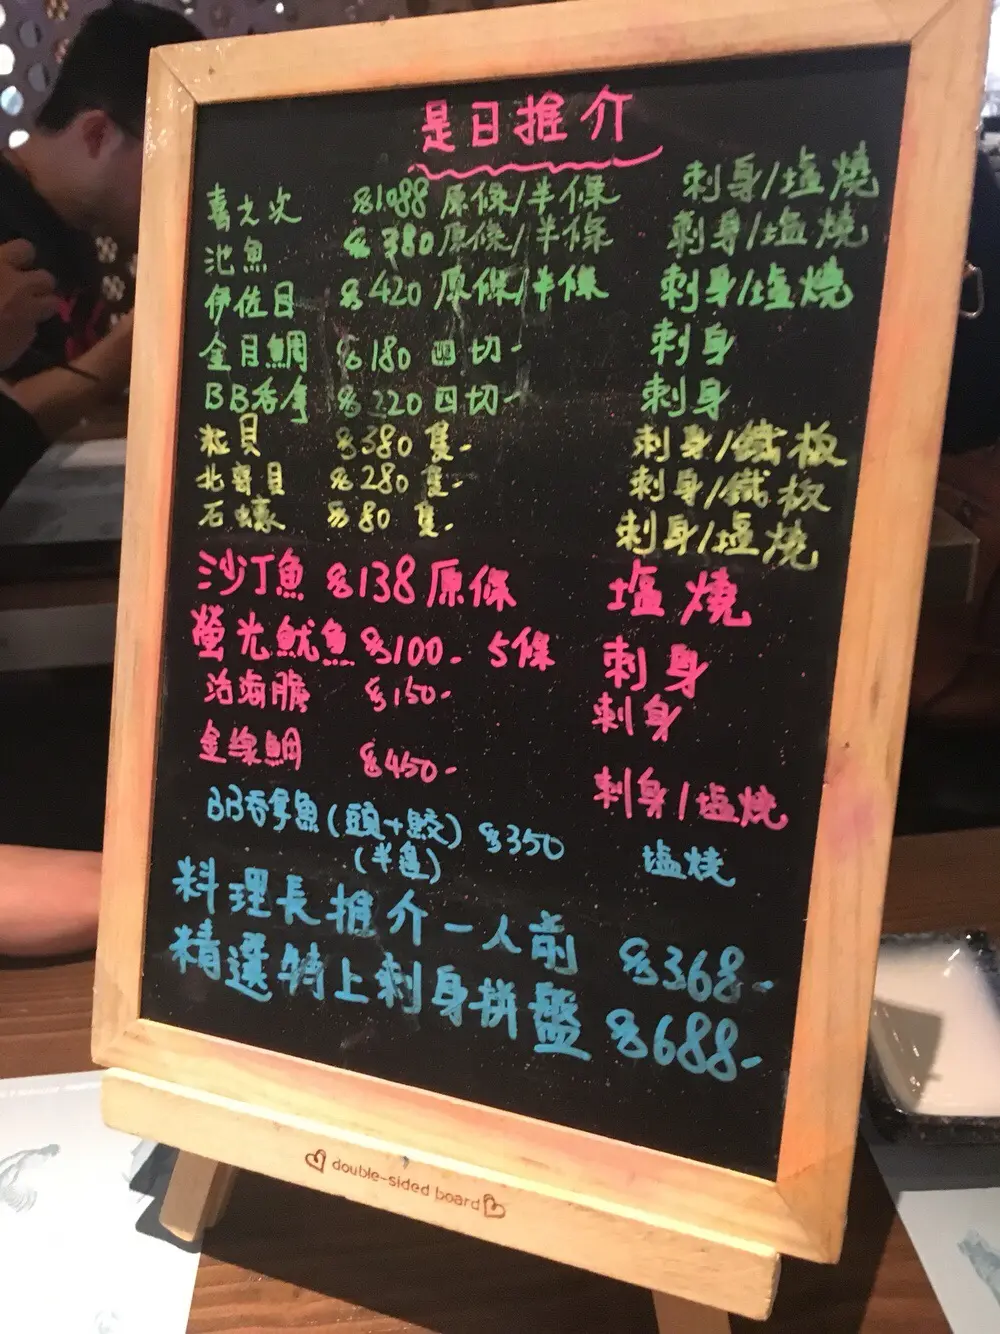 是日推介
喜之次 $1088 原條/半條 刺身/塩燒
池魚 $380 原條/半條 刺身/塩燒
伊佐目 $420 原條/半條 刺身/塩燒
金目鯛 $180 四切- 刺身
BB吞拿 $220 四切- 刺身
粒貝 $380 隻- 刺身/鐵板
北寄貝 $280 隻- 刺身/鐵板
石蠔 $80 隻- 刺身/塩燒
沙丁魚 $138 原條 塩燒
螢光魷魚 $100- 5條 刺身
活海膽 $150- 刺身
金線鯛 $450- 刺身/塩燒
BB吞拿魚(頭+鮫) $350 塩燒
(半邊)
料理長推介一人前 $368-
精選特上刺身拼盤 $688-
double-sided board